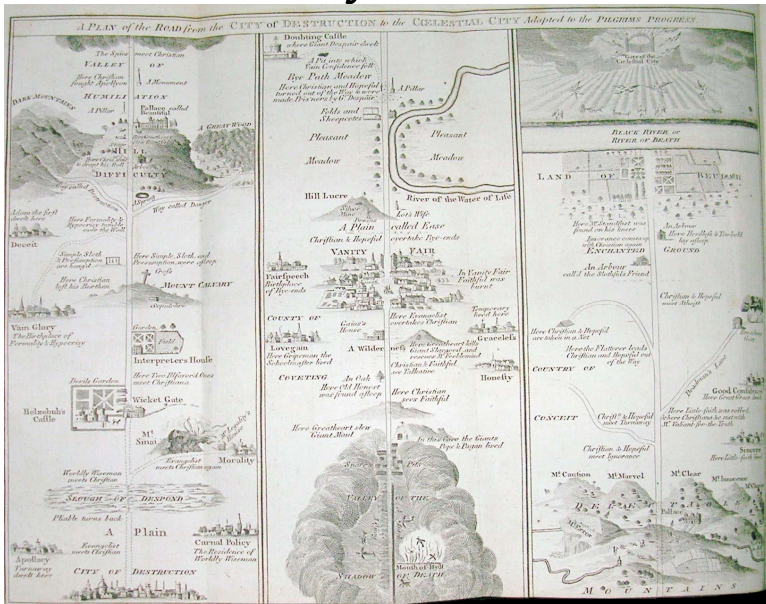 A PLAN of the ROAD from the CITY of DESTRUCTION to the CŒLESTIAL CITY Adapted to the PILGRIMS PROGRESS.
The Spies meet Christian
VALLEY OF
Here Christian
fought Apollyon
A Monument
HUMILIATION
DARK MOUNTAINS
A Pillar
Palace called
Beautiful
A GREAT WOOD
HILL
DIFFICULTY
Way called Danger
Adam the first
dwelt here
Deceit
Here Formality &
Hypocrisy tumble
over the Wall
Simple Sloth
& Presumption
are hanged
Here Simple, Sloth, and
Presumption, were asleep
Cross
Here Christian
left his Burthen
MOUNT CALVARY
Sepulchre
Vain Glory
The Birthplace of
Formality & Hypocrisy
Garden
Field
Interpreters House
Devils Garden
Here Two Ilfavor'd Ones
meet Christiana
Wicket Gate
Belzebub's
Castle
Mt.
Sinai
Mr. Legality's
House
Morality
Evangelist
meets Christian again
Worldly Wiseman
meets Christian
SLOUGH OF DESPOND
Pliable turns back
A Plain
Evangelist
meets Christian
Carnal Policy
The Residence of
Worldly Wiseman
Apostacy
Turnaway
dwelt here
CITY OF DESTRUCTION
Doubting Castle
where Giant Despair dwelt
A Pit into which
Vain Confidence fell
Bye Path Meadow
Here Christian and Hopeful
turned out of the Way & were
made Pris'ners by Gt. Despair
A Pillar
Folds and
Sheepcotes
Pleasant Pleasant
Meadow Meadow
Hill Lucre
River of the Water of Life
Silver
Mine
Demas
Lot's Wife
A Plain called Ease
Christian & Hopeful overtake Bye-ends
VANITY FAIR
Fairspeech
Birthplace
of Bye-ends
In Vanity Fair
Faithful was
burnt
COUNTY OF
Here Evangelist
overtakes Christian
Temporary
lived here
Gaius's
House
Graceless
Lovegain
Here Gripeman the
Schoolmaster lived
A Wilderness
Here Greatheart kills
Giant Slaygood and
rescues Mr. Feeblemind
Christian & Faithful
see Talkative
Honesty
COVETING
An Oak
Here Old Honest
was found asleep
Here Christian
sees Faithful
Here Greatheart slew
Giant Maul
In this Cave the Giants
Pope & Pagan lived
Snares Pits
VALLEY OF THE
Mouth of Hell
SHADOW OF DEATH
Gate of the
Cœlestial City
BLACK RIVER OR
RIVER OF DEATH
LAND OF BEULAH
Here Mr. Standfast was
found on his knees
Ignorance comes up
with Christian again
An Arbour
Here Heedless & Too-bold
lay asleep
ENCHANTED GROUND
An Arbour
call'd the Slothfuls Friend
Christian & Hopeful
meet Atheist
Here Christian & Hopeful
are taken in a Net
Here the Flatterer leads
Christian and Hopeful out
of the Way
COUNTRY OF
Deadman's Lane
Good Confidence
Here Great Grace dwelt
CONCEIT
Christn. & Hopeful
meet Turnaway
Here Little-faith was robbed
& here Christiana &c. met with
Mr. Valiant-for-the-Truth
Christian & Hopeful
meet Ignorance
Sincere
Mt. Caution
Mt. Marvel
Mt. Clear
Mt. Innocence
DELECTABLE
Palace
Mt. Error
MOUNTAINS